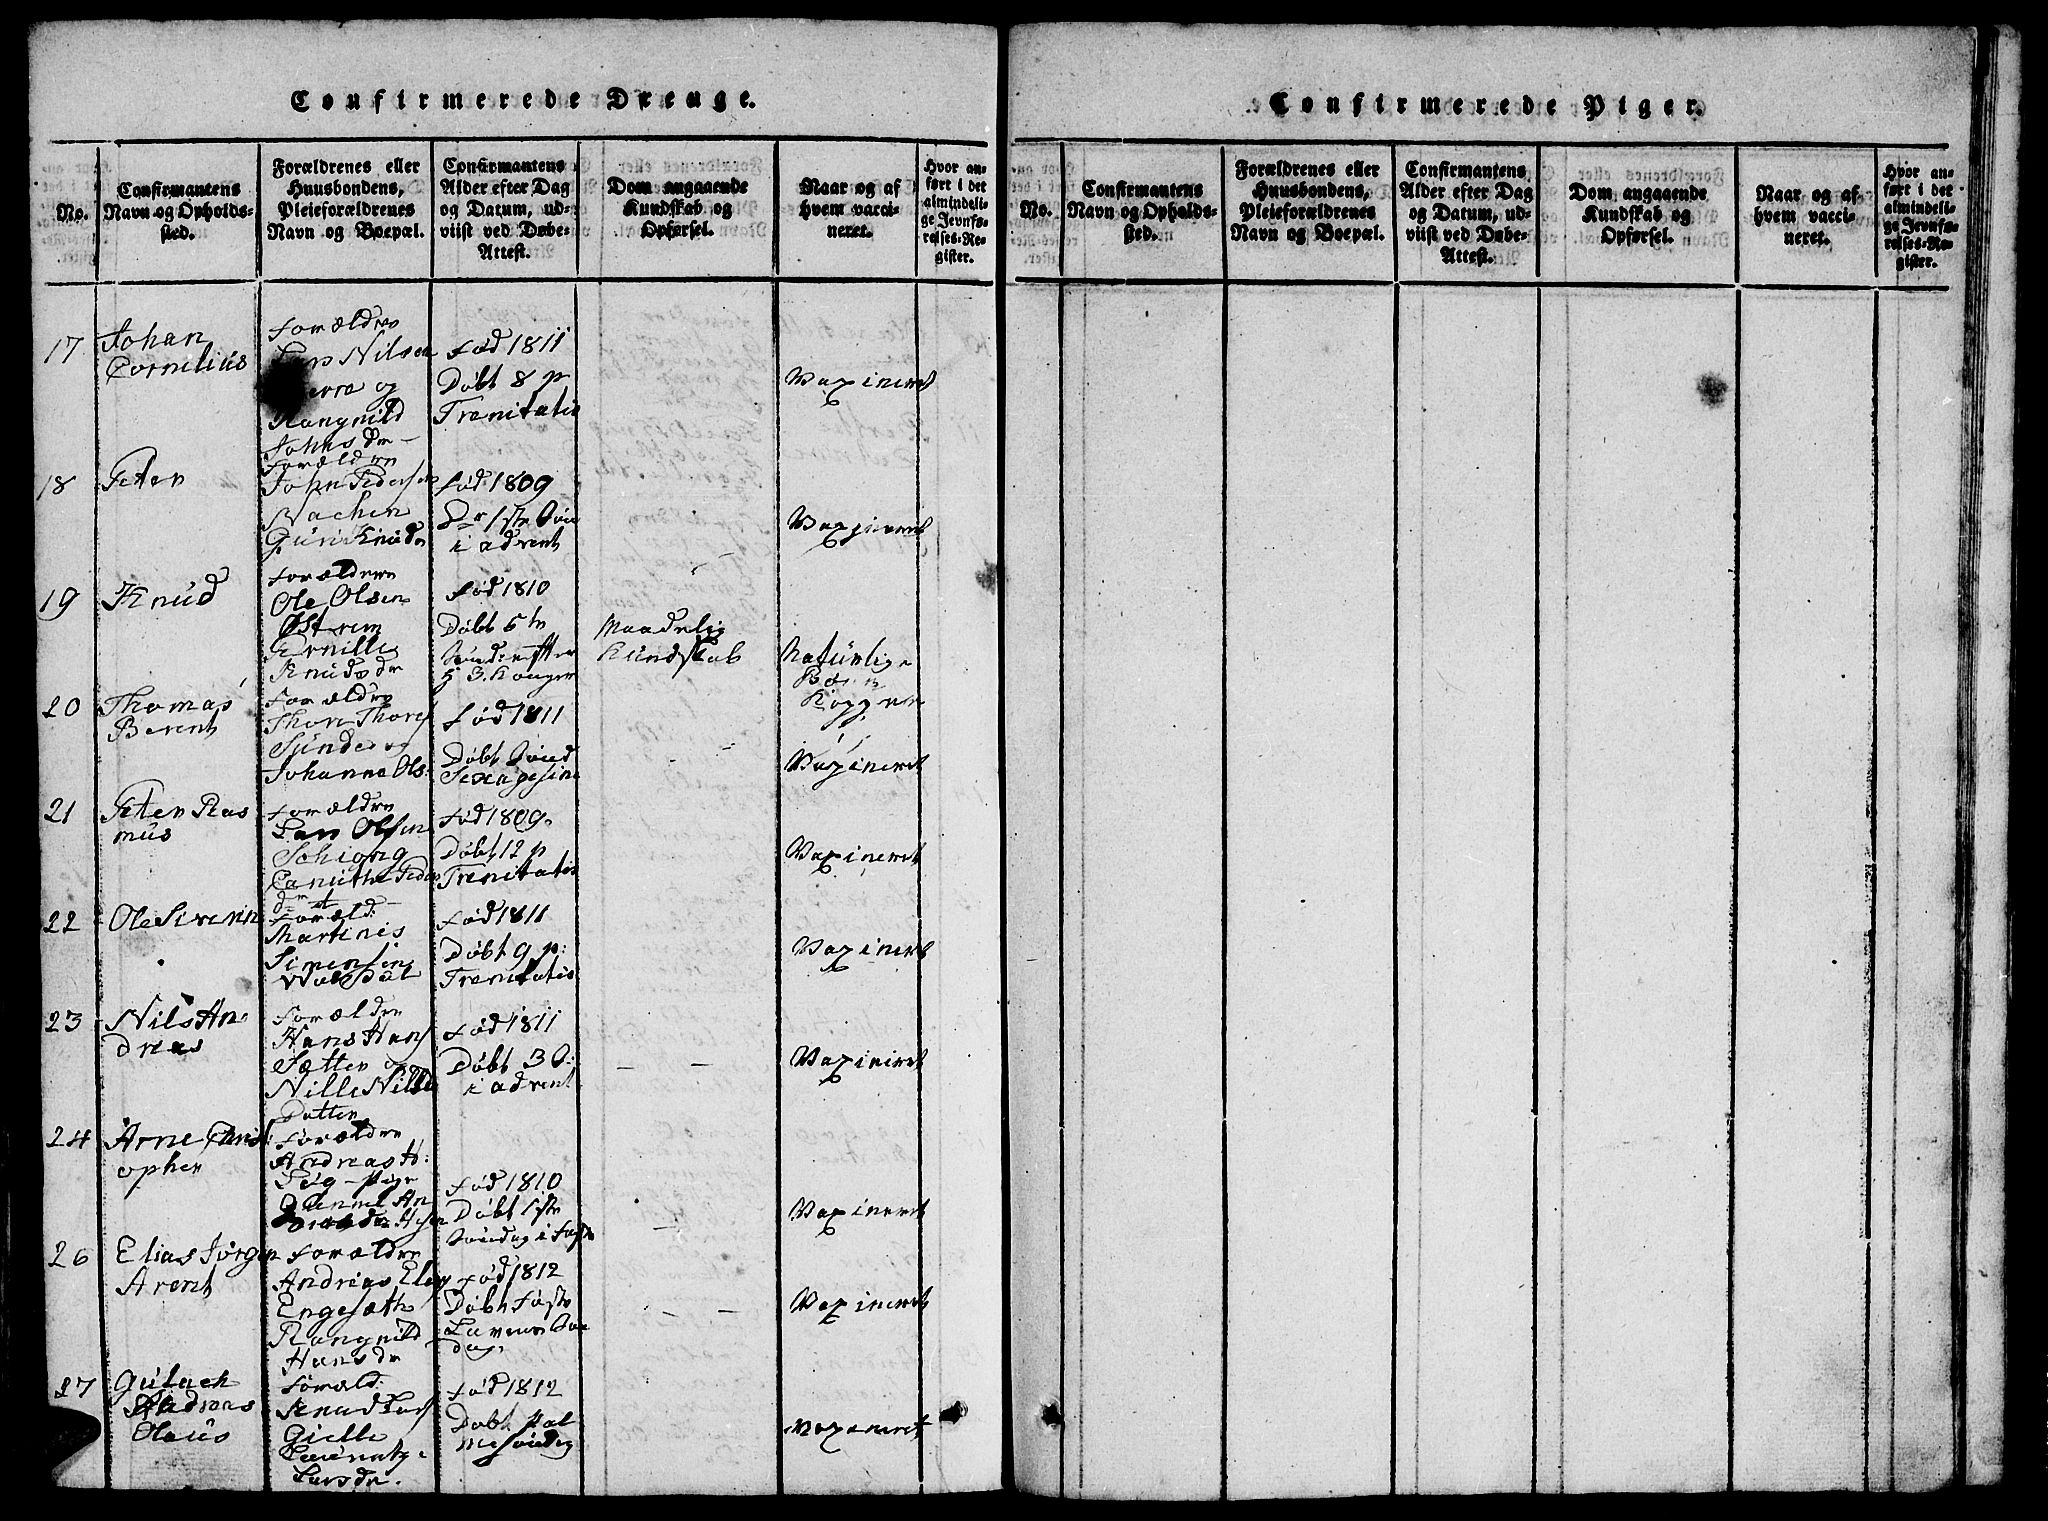 Confirmerede Drenge.
No.
Confirmantens
Navn og Opholds-
sted.
Forældrenes eller
Huusbondens,
Pleieforældrenes
Navn og Boepæl.
Confirmantens
Alder efter Dag
og Datum, ud-
viist ved Døbe-
Attest.
Dom angaaende
Kundskab og
Opførsel.
Naar og af
hvem vacci-
neret.
Hvor an-
ført i det
almindeli-
ge Jevnfø-
relses-Re-
gister.
17
Johan
Cornelius
Forældre
Lars Nilsen
og
Rangnild
Johns dr
Fød 1811
Døbt 8 p
Trenitatis
Vaxineret
18
Peter
Forældre
John Peders
Nachen
Guri Knuds
Fød 1809
Dr 1ste Søn
i advent
Vaxineret
19
Knud
Forældrene
Ole Olsen
Østrem
Pernille
Knuds dr
Fød 1810
Døbt 5te
Søndag efter
H 3. Konger
Maadelig
Kundskab
Naturlige
Børn
Kopper
20
Thomas
Berent
Forældre
Thore Thores
Sunde og
Johanne Ols:
Fød 1811
Døbt Sønd
Sexagesine
Vaxineret
21
Peter Ras
mus
Forældre
Lars Olsen
Schiong
Canuthe Peder
dr
Fød 1809
Døbt 12 p
Trenitatis
Vaxineret
22
Ole Siverin
Foræld:
Martinis
Simensen
Fød 1811
Døbt 9 p:
Trenitatis
Vaxineret
23
Nils An
dreas
Forældre
Hans Hans
Sætter og
Nille Nils
Datter
Fød 1811
Døbt 3 S:
i advent
Vaxineret
24
Arne Christ
opher
Forældre
Andreas H:
Fød 1810
Døbt 1ste
Søndag i Faste
Vaxineret
26
Elias Jørgen
Arent
Forældre
Andreas Elen
Engesæth
Rangnild
Hans dr
Fød 1812
Døbt Faste
Lavens Søn
dag.
Vaxineret
27
Gulack
Andreas
Olaus
Foræld.
Knud Lars
Gielle
Lars dr.
Fød 1812
Døbt Pal
me Søndag
Vaxineret
Confirmerede Piger.
No.
Confirmantens
Navn og Opholds-
sted.
Forældrenes eller
Huusbondens,
Pleieforældrenes
Navn og Boepæl.
Confirmantens
Alder efter Dag
og Datum, ud-
viist ved Døbe-
Attest.
Dom angaaende
Kundskab og
Opførsel.
Naar og af
hvem vacci-
neret.
Hvor an-
ført i det
almindeli-
ge Jevnfø-
relses-Re-
gister.